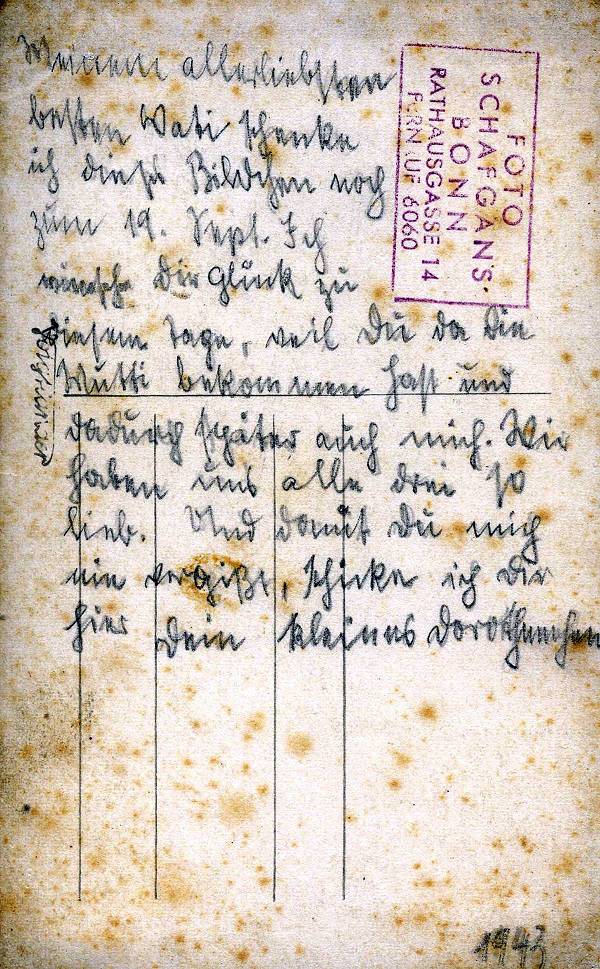 Meinem allerliebsten
besten Vati schenke
ich dieses Bildchen noch
zum 19. Sept. Ich
wünsche Dir Glück zu
diesem Tage, weil Du da die
Mutti bekommen hast und
dadurch später auch mich. Wir
haben uns alle drei so
lieb. Und damit Du mich
nie vergißt, schicke ich Dir
hier Dein kleines Dorotheechen
FOTO
SCHAFGANS
BONN
RATHAUSGASSE 14
FERNRUF 6060
1943